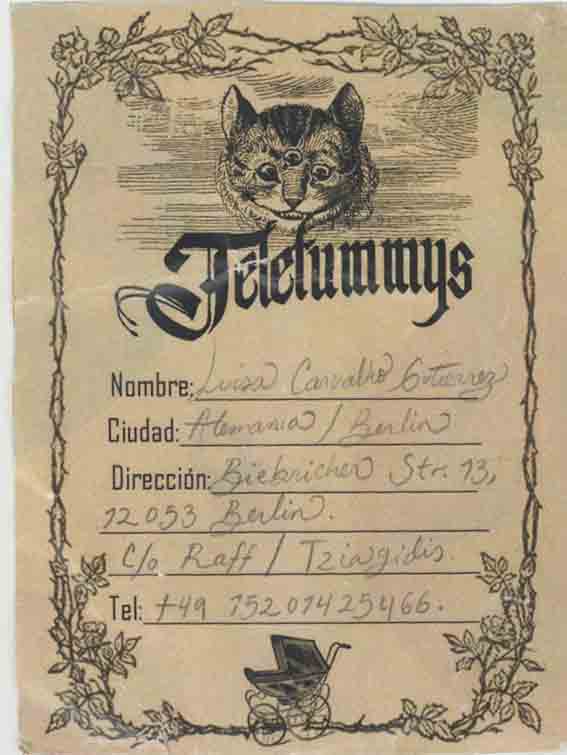 Teletummys
Nombre: Luisa Carvalho Gutierrez
Ciudad: Alemania / Berlin
Dirección: Biebricher Str. 13,
12053 Berlin.
C/o Raff / Tziagidis.
Tel: +49 152 01425466.